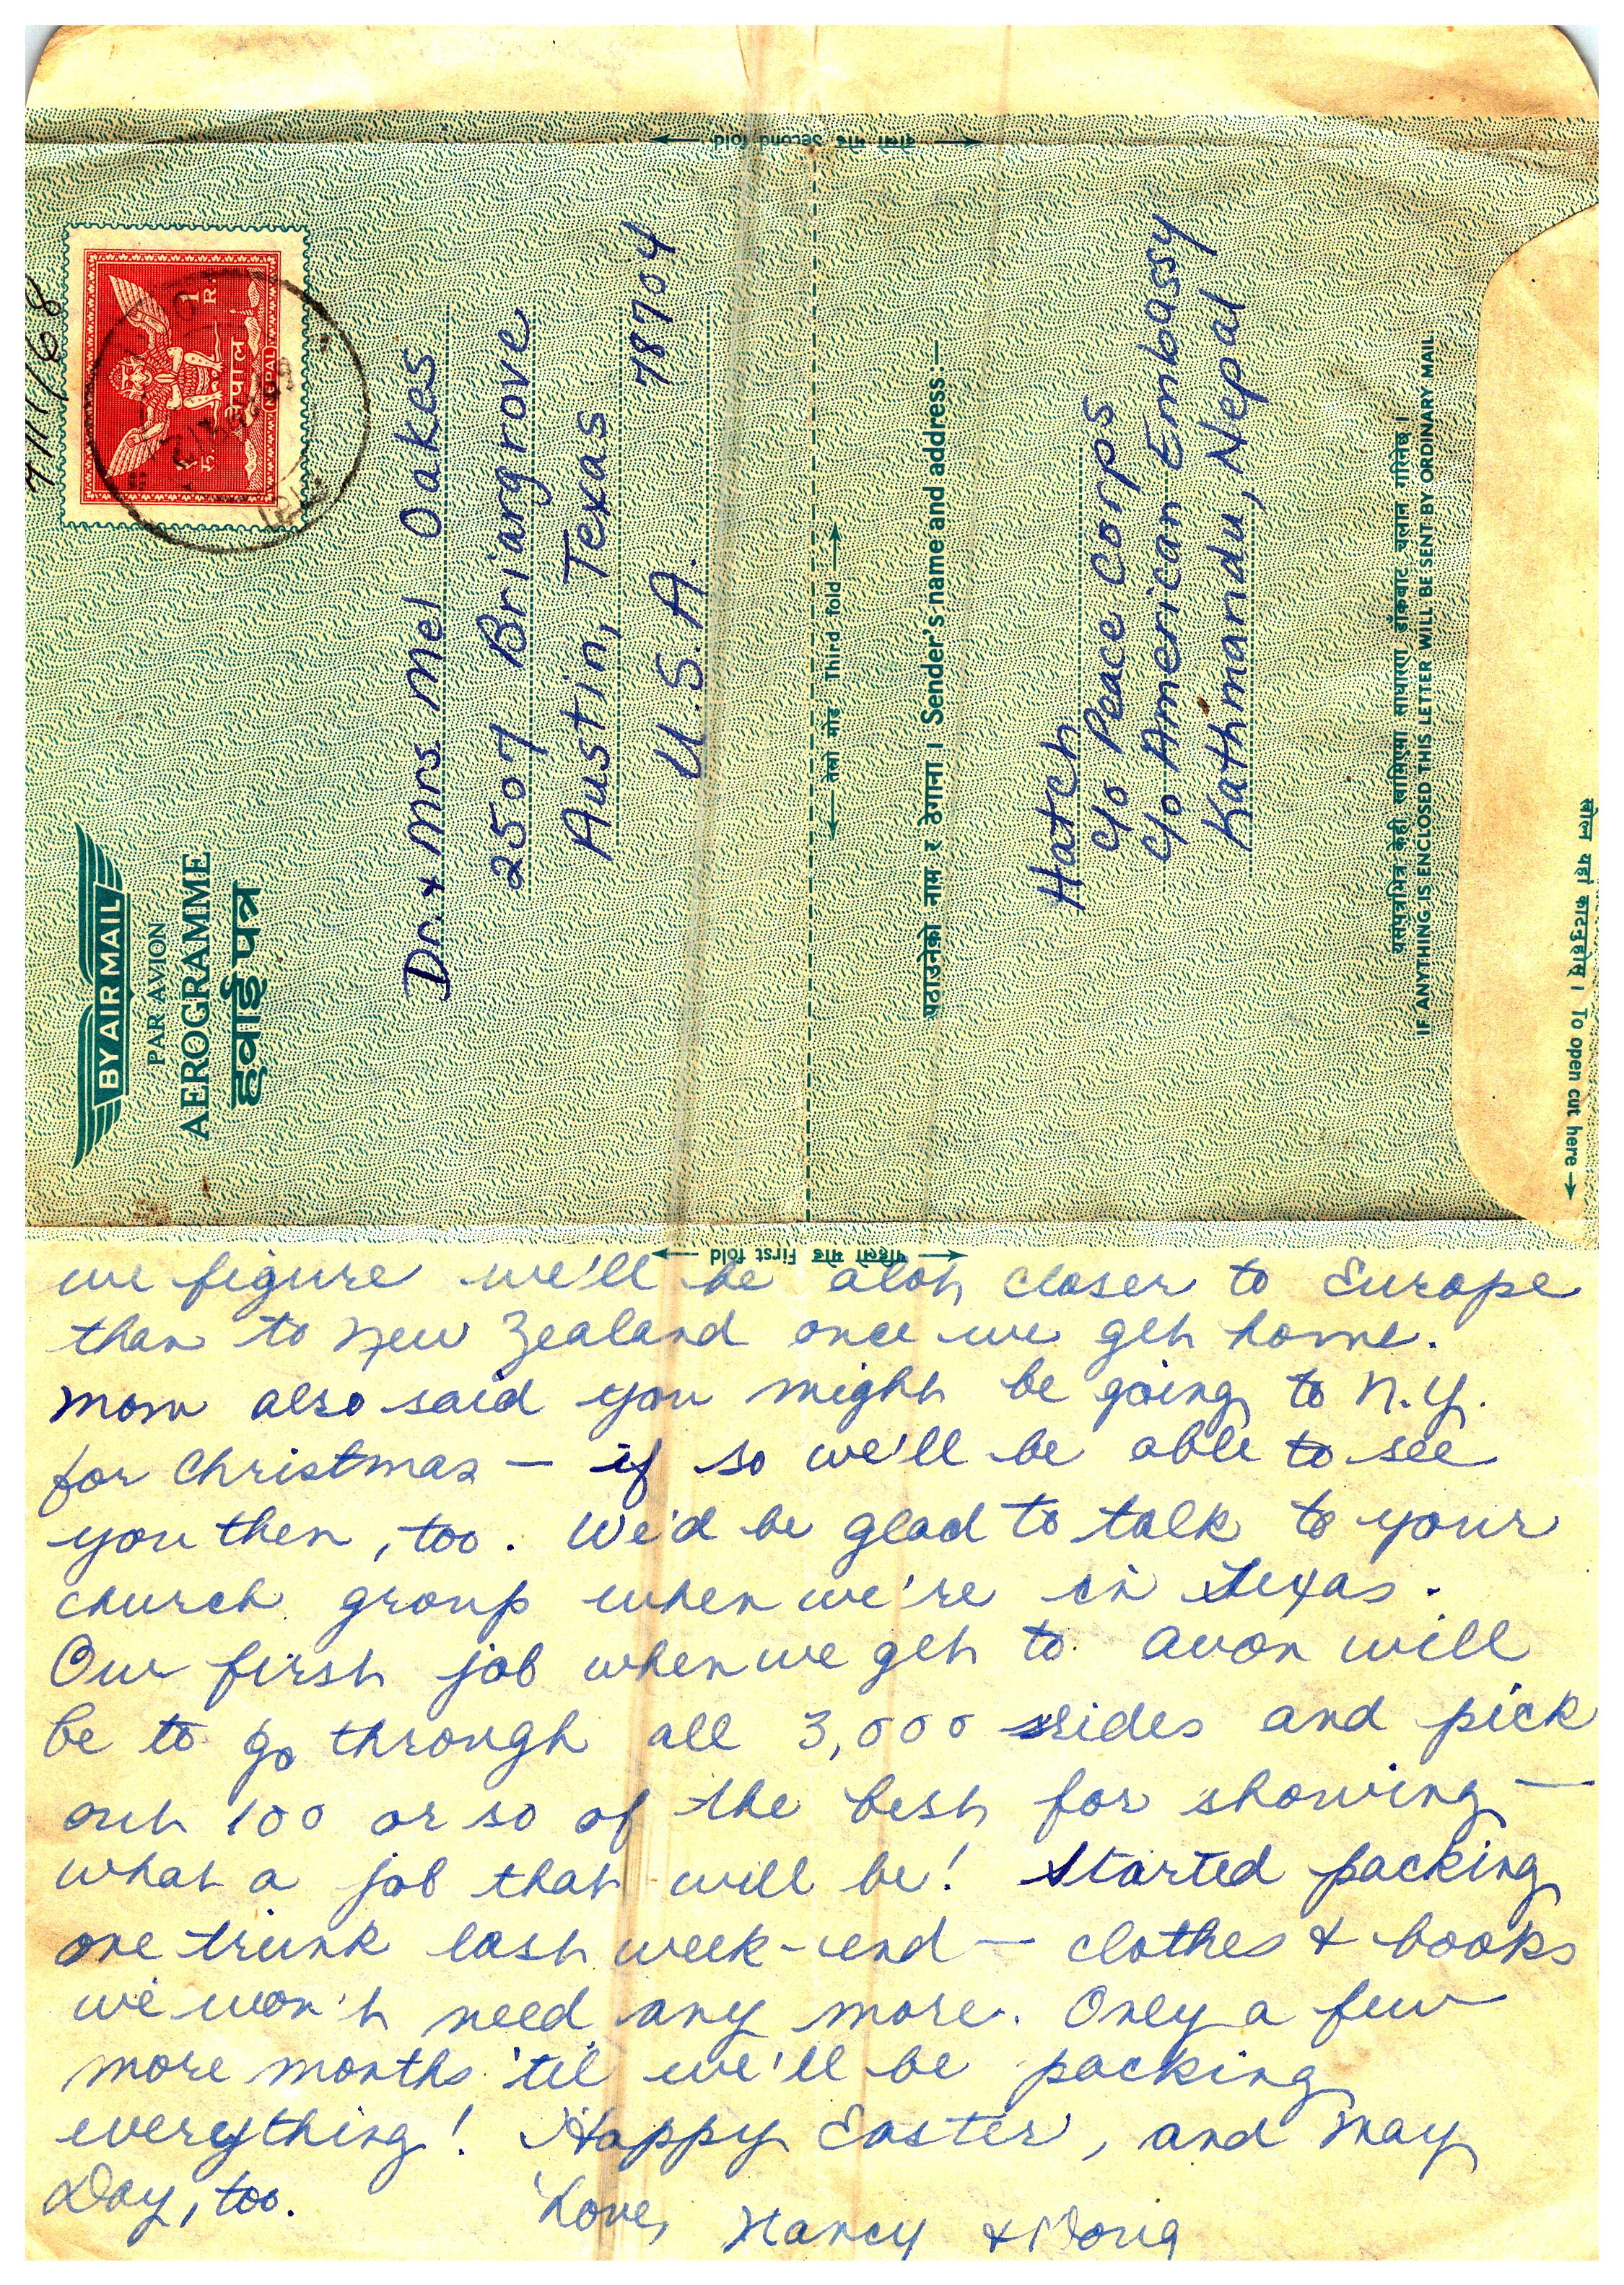 4/1/68
BY AIR MAIL
PAR AVION
AEROGRAMME
हवाई पत्र
नेपाल
NEPAL
1
R.
Dr. & Mrs. Mel Oakes
2507 Briargrove
Austin, Texas 78704
U.S.A.
दोस्रो मोड Second fold
तेस्रो मोड Third fold
पठाउनेको नाम र ठेगाना । Sender's name and address:—
Hatch
c/o Peace Corps
c/o American Embassy
Kathmandu, Nepal
IF ANYTHING IS ENCLOSED THIS LETTER WILL BE SENT BY ORDINARY MAIL.
खोल्न यहां काट्नुहोस् । To open cut here
पहिलो मोड First fold
we figure we'll be alot closer to Europe
than to New Zealand once we get home.
Mom also said you might be going to N.Y.
for Christmas — if so we'll be able to see
you then, too. We'd be glad to talk to your
church group when we're in Texas.
Our first job when we get to Avon will
be to go through all 3,000 slides and pick
out 100 or so of the best for showing —
what a job that will be! Started packing
one trunk last week-end — clothes & books
we won't need any more. Only a few
more months 'til we'll be packing
everything! Happy Easter, and May
Day, too.
Love, Nancy & Doug